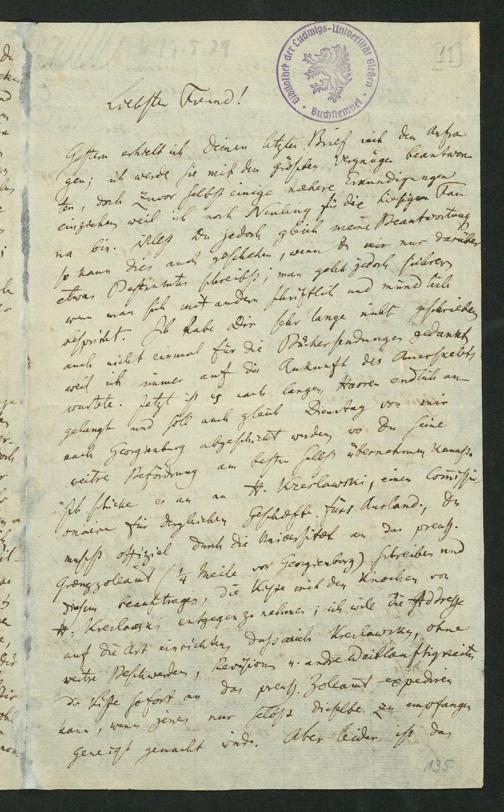 17.5.29
Bibliothek der Ludwigs-Universität Gießen
Buchstempel
[11]
Liebster Freund!
Gestern erhielt ich Deinen letzten Brief mit den Anfra
gen; ich werde sie mit den größten Vergnügen beantwor
ten, doch zuvor selbst einige nähere Erkundigungen
einziehen weil ich noch Neuling für die hiesigen Fau
na bin. Willst Du jedoch gleich meine Beantwortung
so kann dies auch geschehen, wenn Du mir nur darüber
etwas Bestimmtes schreibst; man geht jedoch sicherer
wenn man sich mit andern schriftlich und mündlich
bespricht. Ich habe Dir sehr lange nicht geschrieben
auch nicht einmal für die Büchersendungen gedankt
weil ich immer auf die Ankunft des Auerskelets
wartete. Jetzt ist es nach langen Harren endlich an-
gelangt und soll auch gleich Dienstag von mir
nach Georgenburg abgeschickt werden wo Du seine
weitre Beförderung am besten selbst übernehmen kannst.
Ich schicke es an H. Kreslawski, einen Commissi
onair für dergleichen Geschäfte fürs Ausland, Du
musst offizial durch die Universität an das preuss.
Grenzzollamt (1/4 Meile vor Georgenburg) schreiben und
diesem beauftragen, die Kiste mit den Knochen von
H. Kreslawski entgegenzunehmen; ich will die Addresse
auf die Art einrichten dass auch Kreslawsky, ohne
weitre Beschwerden, Revisions u. andre Weitläuftigkeiten
die Kiste sofort an das preuss. Zollamt expediren
kann, wenn jenes nur selbst dieselbe zu empfangen
geneigt gemacht wird. Aber leider ist das
135